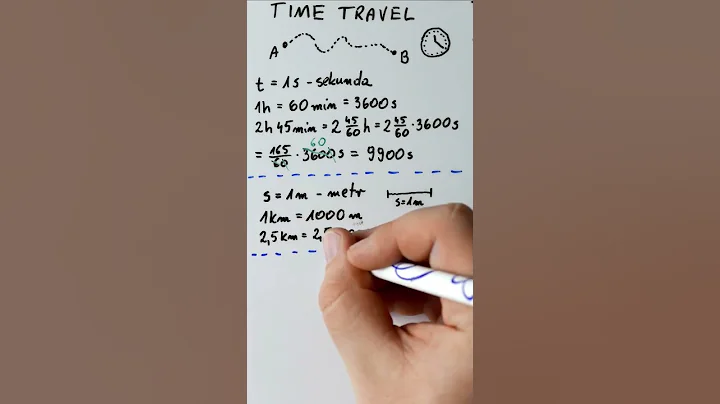 TIME TRAVEL
A B
t = 1s - sekunda
1h = 60 min = 3600 s
2h 45min = 2 45/60 h = 2 45/60 · 3600 s
60
= 165/60 · 3600 s = 9900 s
s = 1m - metr
s = 1m
1km = 1000 m
2,5 km = 2,5